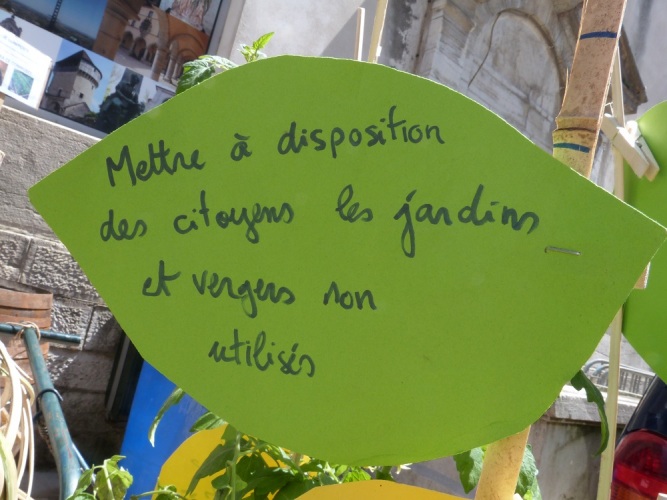 Mettre à disposition
des citoyens les jardins
et vergers non
utilisés